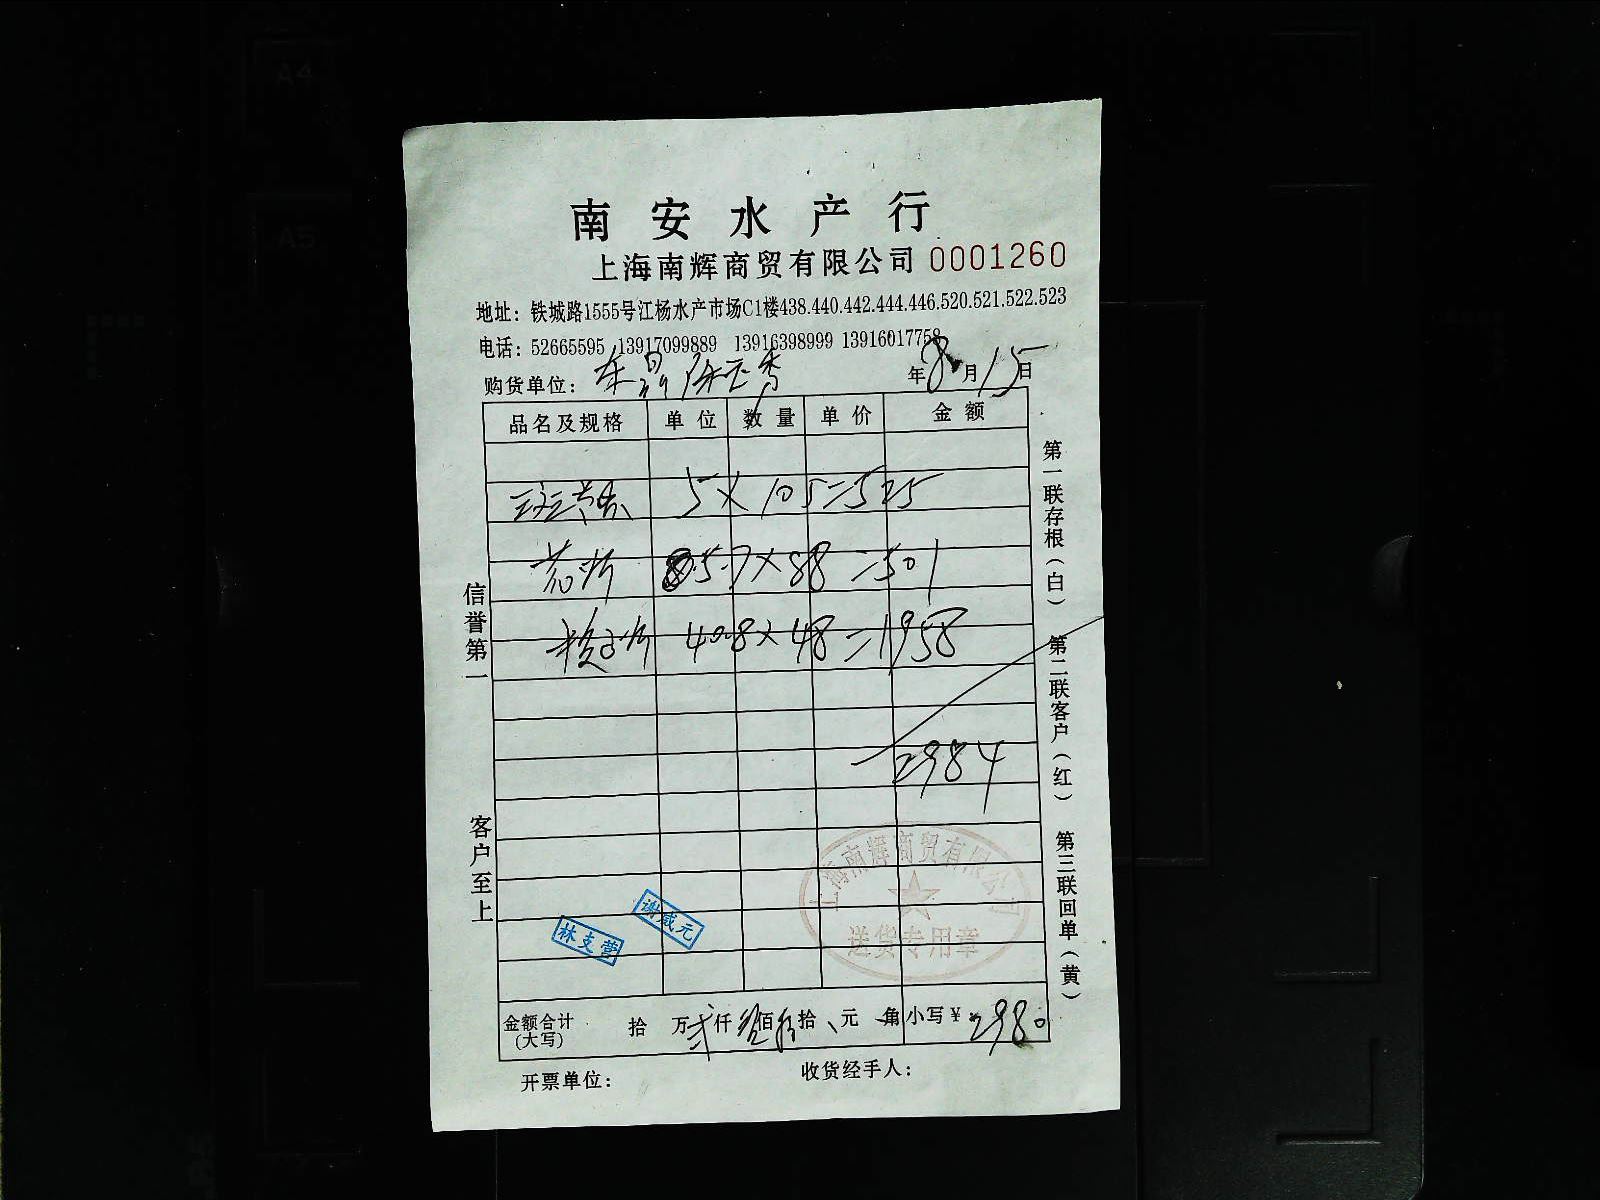 南安水产行
上海南辉商贸有限公司 0001260
地址：铁城路1555号江杨水产市场C1楼438.440.442.444.446.520.521.522.523
电话：52665595 13917099889 13916398999 13916017758
购货单位：
年8月15日
品名及规格 单位 数量 单价 金额
5×105=525
5.7×88=501
40.8×48=1958
2984
金额合计(大写) 拾 万贰仟 佰 拾 元 角 小写￥2980
开票单位： 收货经手人：
信誉第一 客户至上
第一联存根（白） 第二联客户（红） 第三联回单（黄）
上海南辉商贸有限公司
送货专用章
谢咸元
林支营
A4
A5